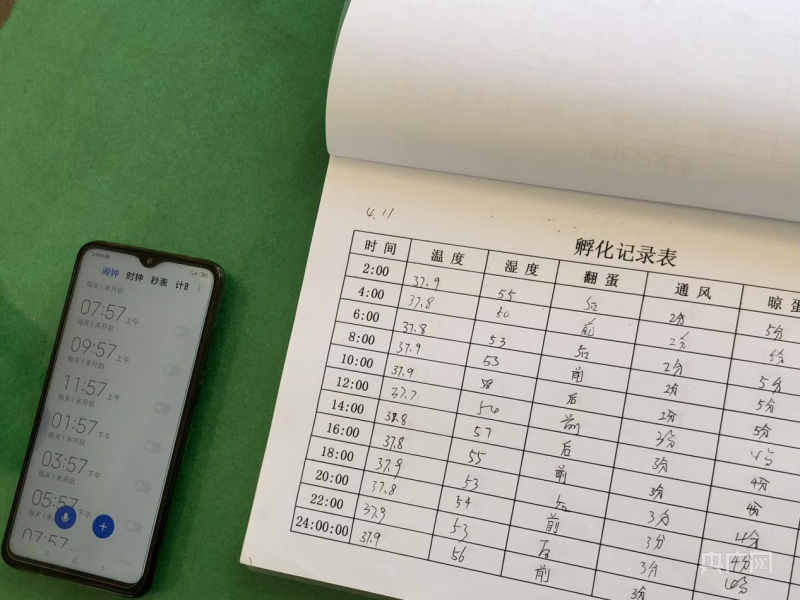 闹钟 时钟 秒表 计时
每天 | 未开启
07:57 上午
每天 | 未开启
09:57 上午
每天 | 未开启
11:57 上午
每天 | 未开启
01:57 下午
每天 | 未开启
03:57 下午
每天 | 未开启
05:57 下午
每天 | 未开启
07:57
4.11
孵化记录表
时间 温度 湿度 翻蛋 通风 晾蛋
2:00 37.9 55 后 2分 5分
4:00 37.8 50 前 2分 5分
6:00 37.8 53 后 2分 5分
8:00 37.9 53 前 2分 5分
10:00 37.9 58 后 2分 5分
12:00 37.7 56 前 3分 4分
14:00 37.8 57 后 3分 4分
16:00 37.8 55 前 3分 4分
18:00 37.9 53 后 3分 4分
20:00 37.8 54 前 3分 4分
22:00 37.9 53 后 3分
24:00:00 37.9 56 前 3分
央广网